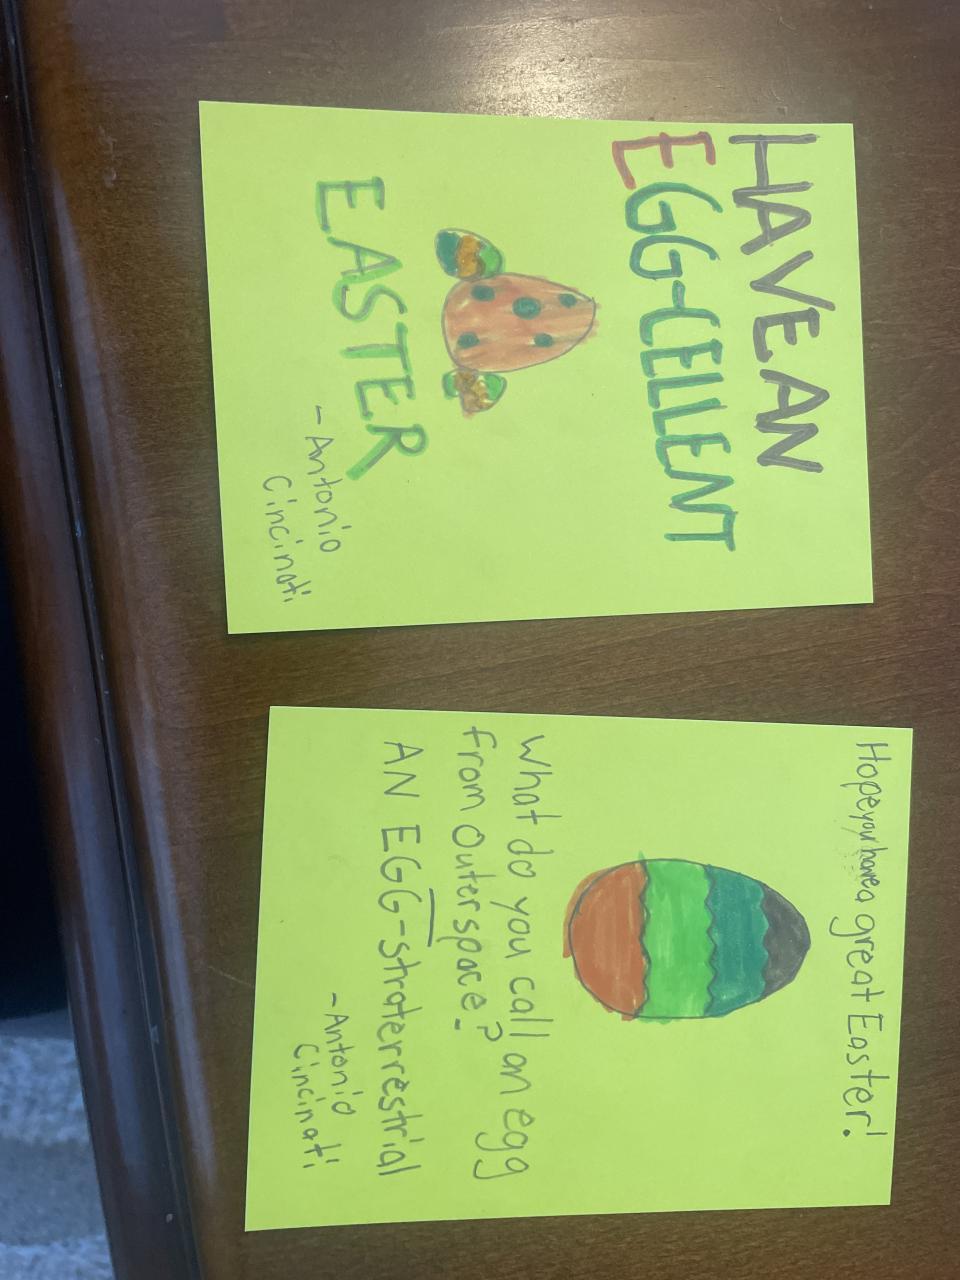 HAVE AN
EGG-CELLENT
EASTER
- Antonio
Cincinati
Hope you have a great Easter!
What do you call an egg
from outerspace?
AN EGG-straterrestrial
-Antonio
Cincinati